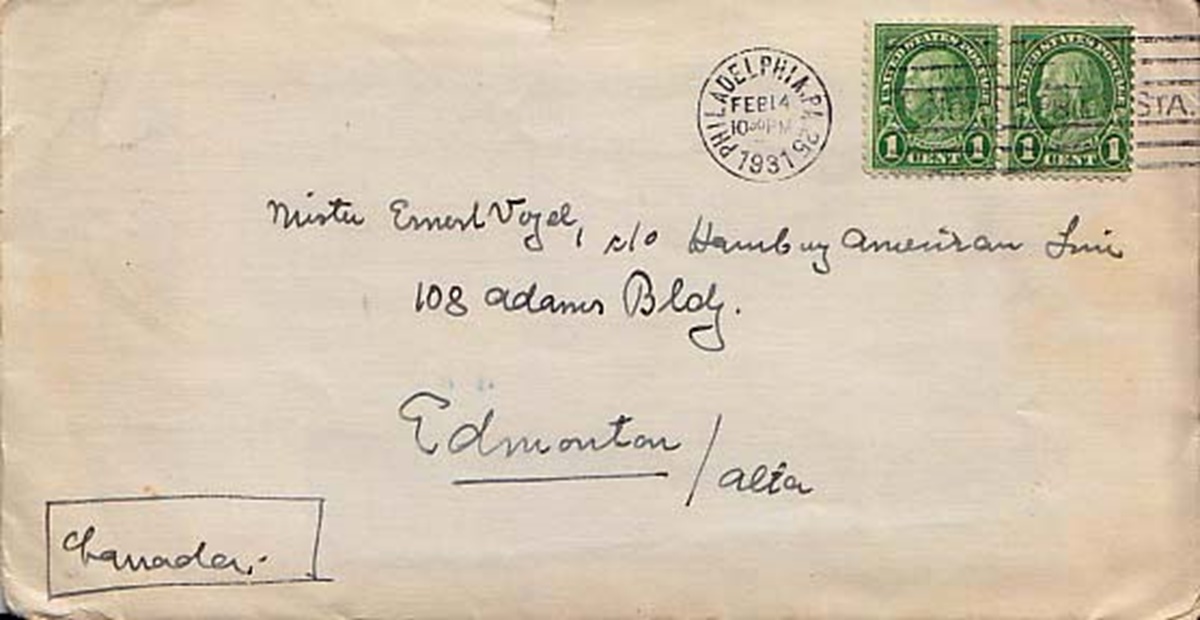 PHILADELPHIA, PA. 25
FEB 14
10:30 PM
1931
UNITED STATES POSTAGE
1 CENT 1
UNITED STATES POSTAGE
1 CENT 1
STA.
Mister Ernest Vogel, c/o Hamburg American Line
108 Adams Bldg.
Edmonton / Alta
Canada.